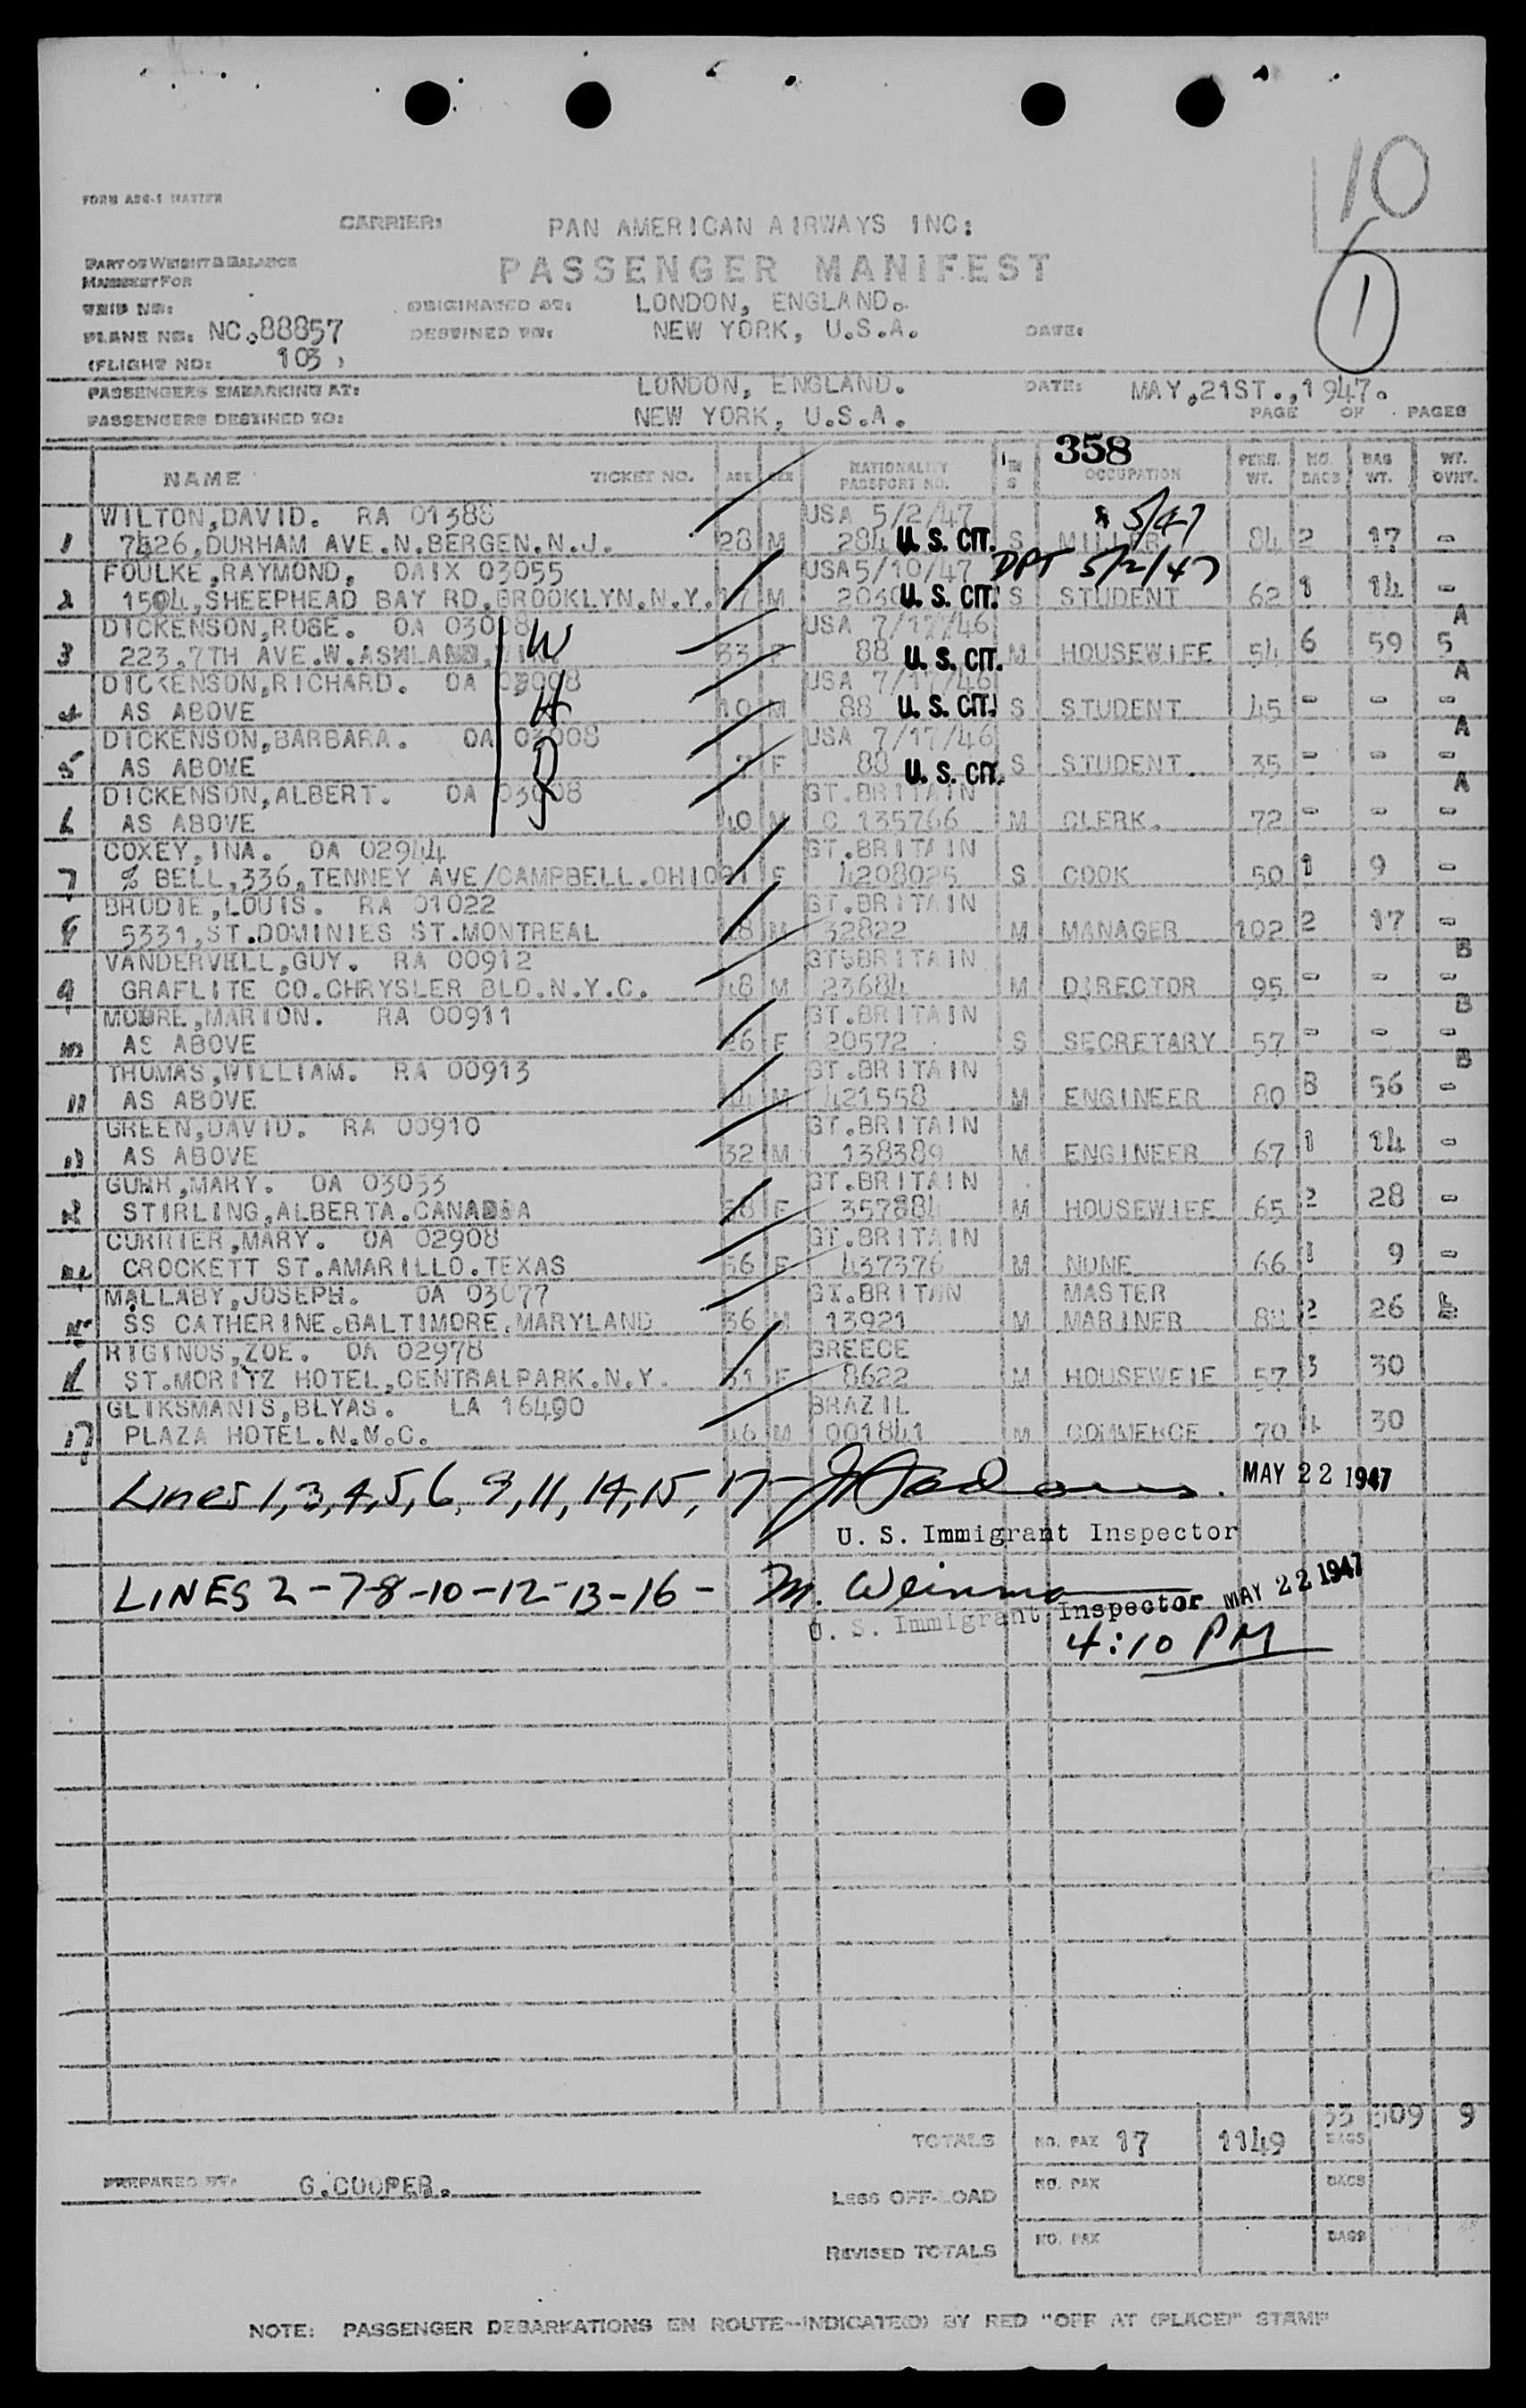 10
1
FORM ASG-1 MASTER
CARRIER: PAN AMERICAN AIRWAYS INC:
PART OF WEIGHT & BALANCE
MANIFEST FOR
PASSENGER MANIFEST
TRIP NO:
ORIGINATED AT: LONDON, ENGLAND.
PLANE NO: NC.88857 DESTINED TO: NEW YORK, U.S.A. DATE:
(FLIGHT NO: 103 )
PASSENGERS EMBARKING AT: LONDON, ENGLAND. DATE: MAY,21ST.,1947.
PASSENGERS DESTINED TO: NEW YORK, U.S.A. PAGE OF PAGES
358
NAME TICKET NO. AGE SEX NATIONALITY PASSPORT NO. OCCUPATION PERS. WT. NO. BAGS BAG WT. WT. OVHT.
WILTON,DAVID. RA 01388 USA 5/2/47 5/47
1 7426,DURHAM AVE.N.BERGEN.N.J. 28 M 284 U. S. CIT. S MILLER 84 2 17 -
FOULKE,RAYMOND. OAIX 03055 USA5/10/47 DPT 5/2/47
2 1504,SHEEPHEAD BAY RD.BROOKLYN.N.Y. 17 M U. S. CIT. S STUDENT 62 1 14 -
DICKENSON,ROSE. OA 03008 W USA 7/17/46 A
3 223.7TH AVE.W.ASHLAND, 33 F 88 U. S. CIT. M HOUSEWIFE 54 6 59 5
DICKENSON,RICHARD. OA 03008 USA 7/17/46 A
4 AS ABOVE H 10 M 88 U. S. CIT. S STUDENT 45 - - -
DICKENSON,BARBARA. OA 03008 USA 7/17/46 A
5 AS ABOVE 7 F 88 U. S. CIT. S STUDENT. 35 - - -
DICKENSON,ALBERT. OA 03008 GT.BRITAIN A
6 AS ABOVE 40 M C 135766 M CLERK. 72 - - -
COXEY,INA. OA 02944 GT.BRITAIN
7 % BELL,336,TENNEY AVE/CAMPBELL.OHIO F 4208025 S COOK 50 1 9 -
BRODIE,LOUIS. RA 01022 GT.BRITAIN
8 5331,ST.DOMINIES ST.MONTREAL 48 M 32822 M MANAGER 102 2 17 -
VANDERVELL,GUY. RA 00912 GT.BRITAIN B
9 GRAFLITE CO.CHRYSLER BLD.N.Y.C. 48 M 23684 M DIRECTOR 95 - - -
MOORE,MARION. RA 00911 GT.BRITAIN B
10 AS ABOVE 26 F 20572 S SECRETARY 57 - - -
THOMAS,WILLIAM. RA 00913 GT.BRITAIN B
11 AS ABOVE 44 M 421558 M ENGINEER 80 8 56 -
GREEN,DAVID. RA 00910 GT.BRITAIN
12 AS ABOVE 32 M 138389 M ENGINEER 67 1 14 -
GUHR,MARY. OA 03053 GT.BRITAIN
13 STIRLING,ALBERTA.CANADSA 58 F 357884 M HOUSEWIFE 65 2 28 -
CURRIER,MARY. OA 02908 GT.BRITAIN
14 CROCKETT ST.AMARILLO.TEXAS 56 F 437376 M NONE 66 1 9 -
MALLABY,JOSEPH. OA 03077 GT.BRITAN MASTER
15 SS CATHERINE.BALTIMORE.MARYLAND 36 M 13921 M MARINER 88 2 26
RIGINOS,ZOE. OA 02978 GREECE
16 ST.MORITZ HOTEL,CENTRALPARK.N.Y. 31 F 8622 M HOUSEWEIE 57 3 30
GLIKSMANIS,BLYAS. LA 16490 BRAZIL
17 PLAZA HOTEL.N.Y.C. 46 M 001841 M COMMERCE 70 4 30
Lines 1,3,4,5,6,9,11,14,15,17- MAY 22 1947
U. S. Immigrant Inspector
LINES 2-7-8-10-12-13-16- M. Weinma MAY 22 1947
U. S. Immigrant Inspector
4:10 PM
TOTALS NO. PAX 17 1149 33 BAGS 309 9
PREPARED BY: G.COOPER.
LESS OFF-LOAD NO. PAX BAGS
REVISED TOTALS NO. PAX BAGS
NOTE: PASSENGER DEBARKATIONS EN ROUTE--INDICATE(D) BY RED "OFF AT (PLACE)" STAMP